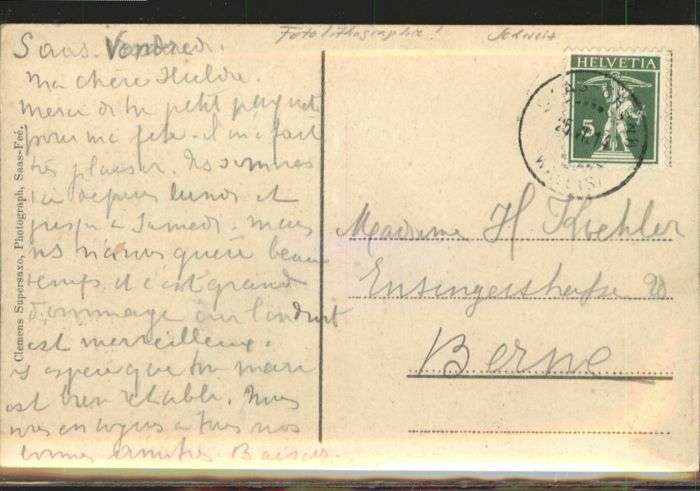 Saas. Vendredi.
Ma chère Hulda.
Merci du petit paquet
pour ma fête - il m'a fait
très plaisir. Ns sommes
ici depuis lundi et
jusqu'à Samedi. mais
ns n'avons guère beau
temps et c'est grand
dommage car l'endroit
est merveilleux.
Js espère que ton mari
est bien rétabli. Nous
vous envoyons à tous nos
bonnes amitiés Baisers.
Clemens Supersaxo, Photograph, Saas-Feé.
Fotolithographie!
Schweiz
HELVETIA
5
Madame H Koehler
Ensingerstrasse 20
Berne